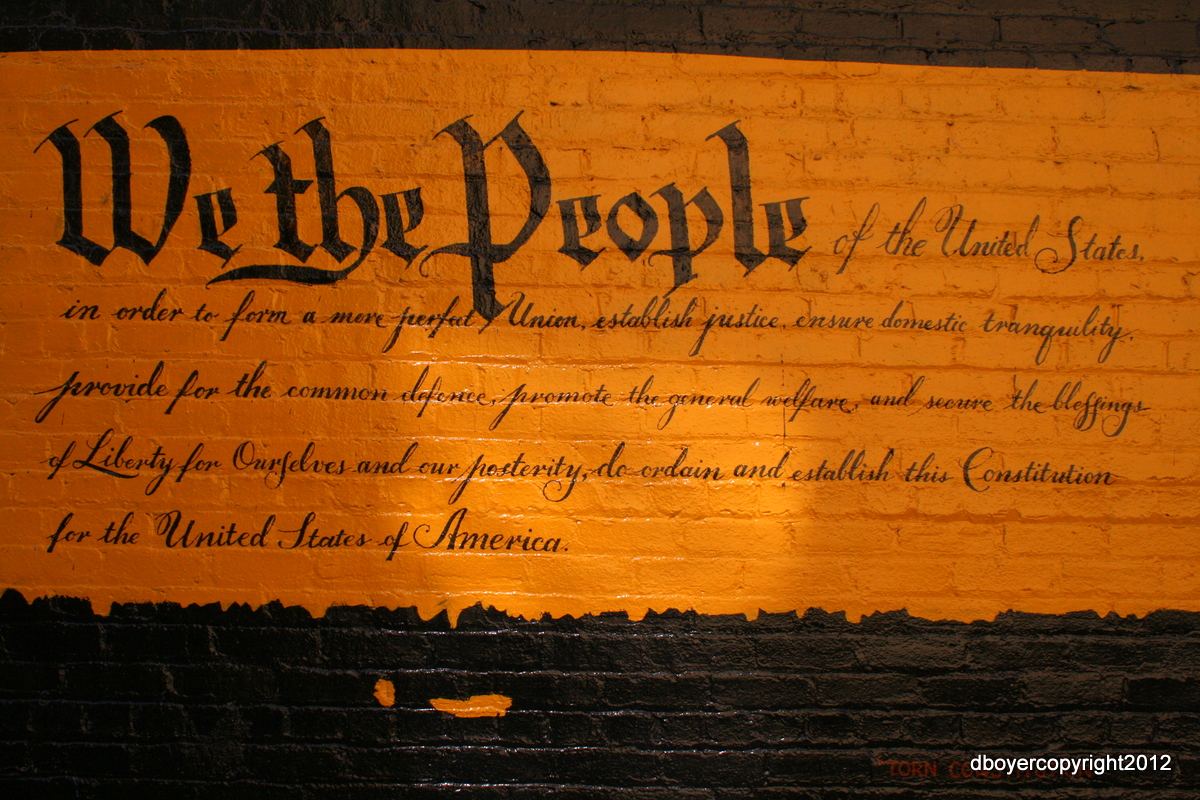 We the People of the United States,
in order to form a more perfect Union, establish justice, ensure domestic tranquility,
provide for the common defence, promote the general welfare, and secure the bleſsings
of Liberty for Ourſelves and our posterity, do ordain and establish this Constitution
for the United States of America.
"TORN CONSTITUTION
dboyercopyright2012